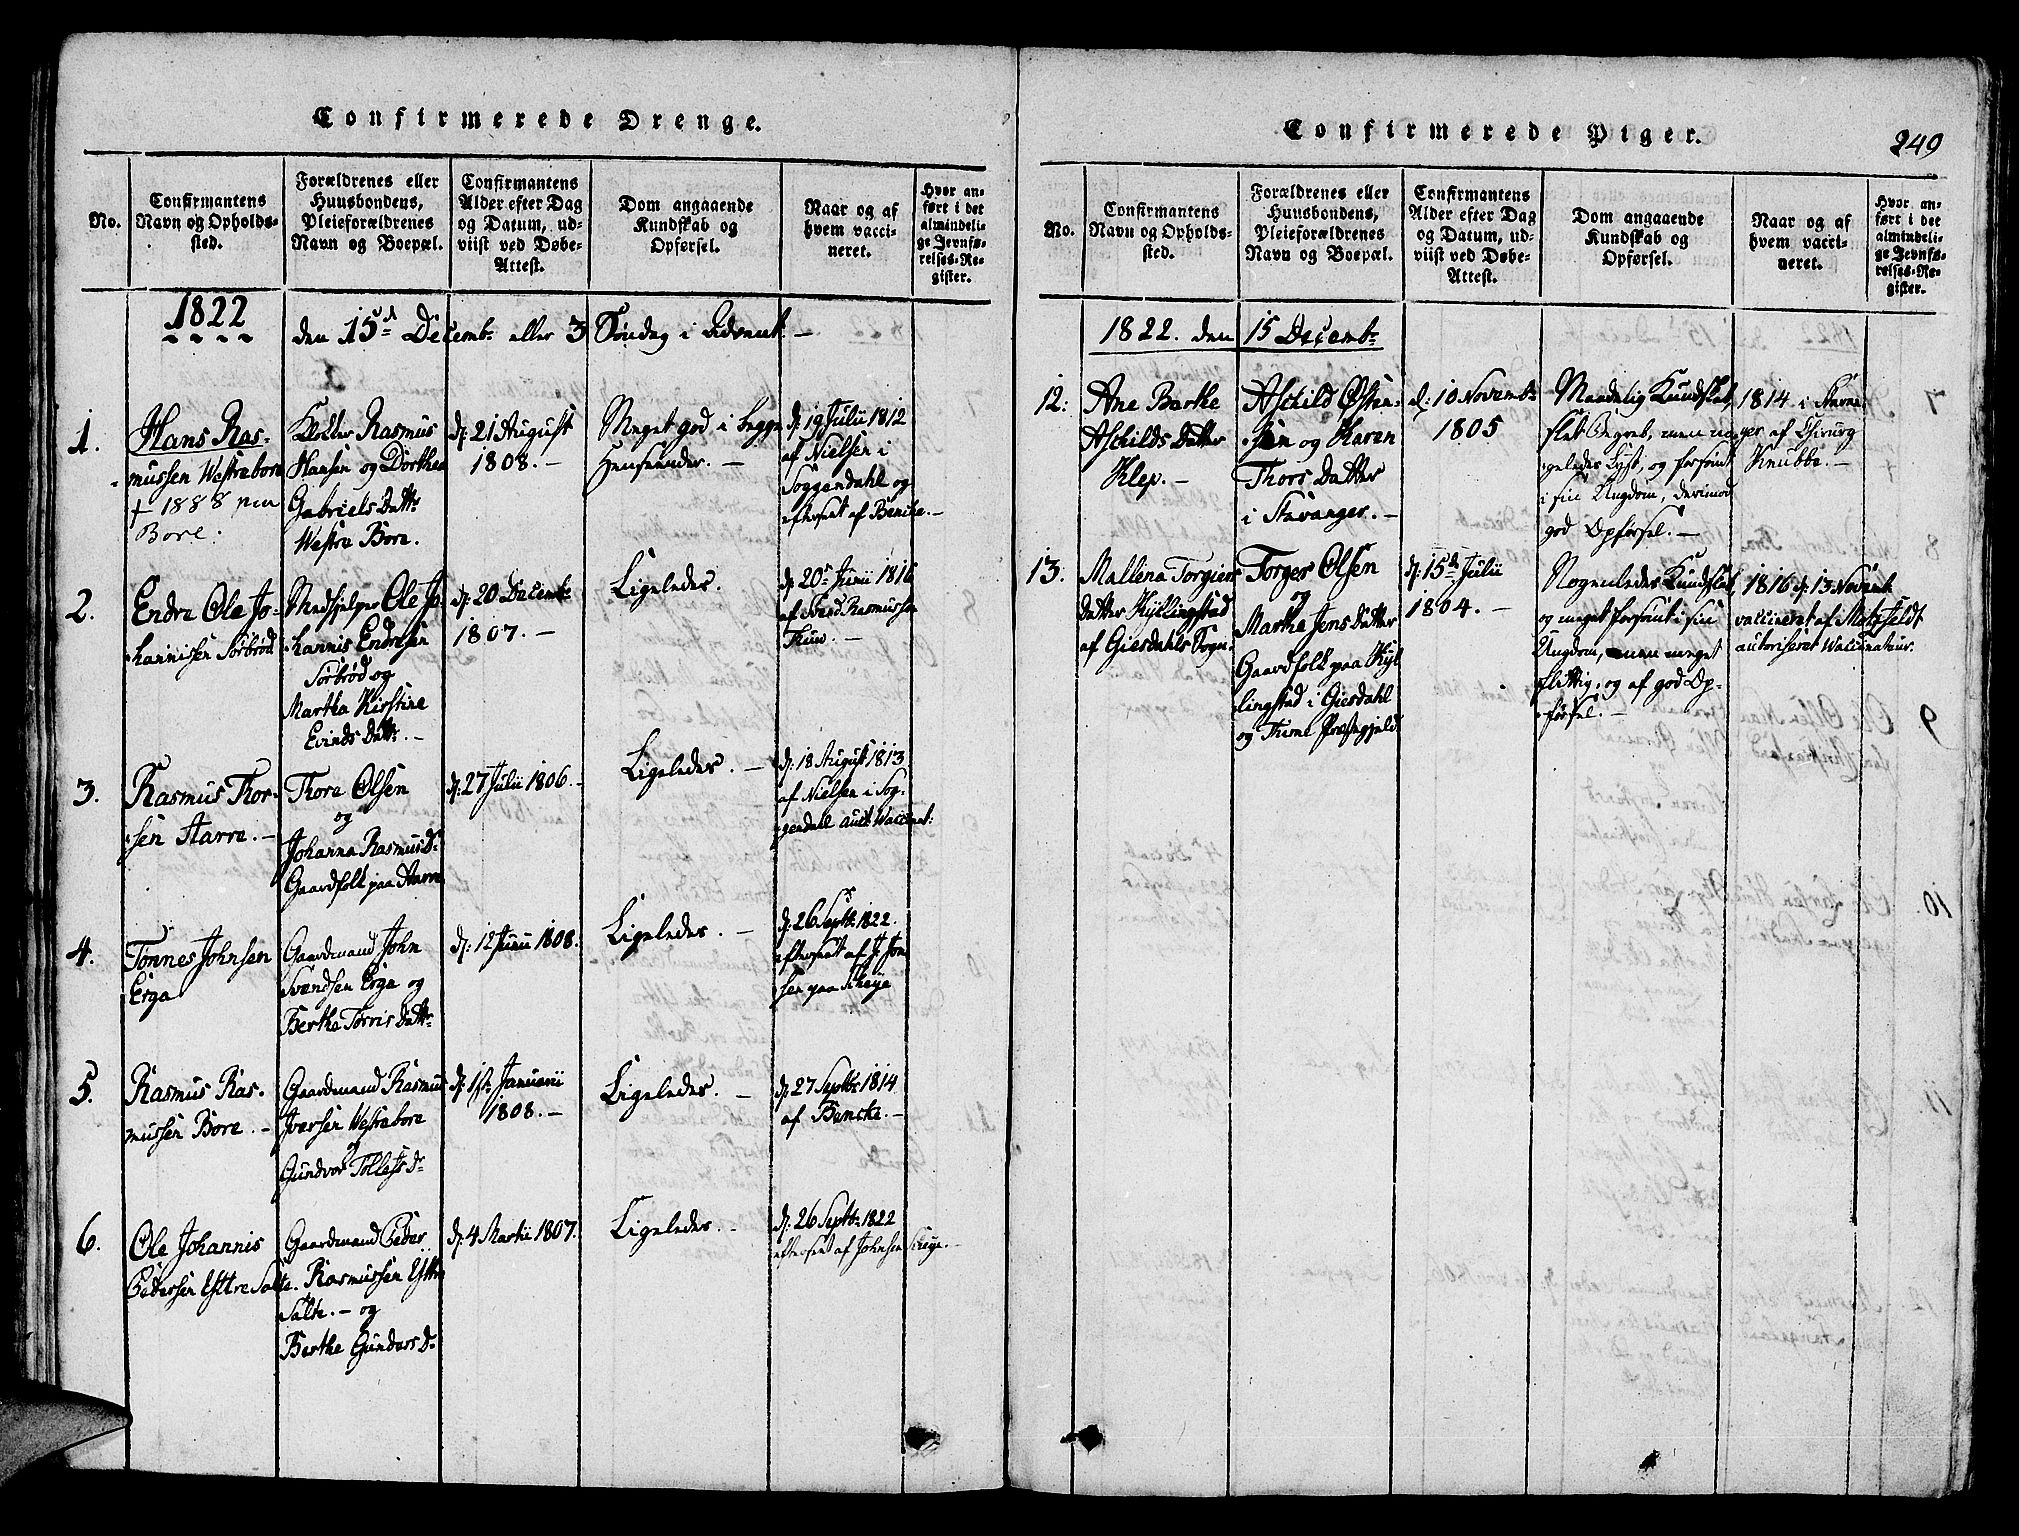 Confirmerede Drenge.
No.
Confirmantens
Navn og Opholds-
sted.
Forældrenes eller
Huusbondens,
Pleieforældrenes
Navn og Boepæl.
Confirmantens
Alder efter Dag
og Datum, ud-
viist ved Døbe-
Attest.
Dom angaaende
Kundskab og
Opførsel.
Naar og af
hvem vacci-
neret.
Hvor an-
ført i det
almindeli-
ge Jevnfø-
relses-Re-
gister.
1822
den 15d Decembr eller 3 Søndag i Advent. -
1.
Hans Ras-
mussen Westrebore
+ 1888 paa
Bore.
Klokker Rasmus
Hansen og Dorthea
Gabriels Dattr
Westre Bore.
d. 21 August
1808. -
Meget god i begge
Henseender. -
d. 19 Julii 1812
af Nielsen i
Soggendahl og
efterseet af Bencke. -
2.
Endre Ole Jo-
hannissen Sørbrød
Medhjelper Ole Jo-
hannis Endresen
Sørbrød og
Martha Kirstine
Evinds Dattr. -
d. 20 Decembr
1807. -
Ligeledes.
d. 20 Junii 1816
af Svend Rasmussen
Thuu. -
3.
Rasmus Thor-
sen Aarre. -
Thore Olsen
og
Johanna Rasmus Dr
Gaardfolk paa Aarre
d. 27 Julii 1806. -
Ligeledes. -
d. 18 August 1813
af Nielsen i Sog-
gendahl aut. Vaccinat:
4.
Tønnes Johnsen
Erga
Gaardmand John
Svendsen Erga og
Berthe Torris Dattr
d. 12 Junii 1808.
Ligeledes. -
d. 26 Septbr 1822.
efterseet af J. Jon-
sen paa Skeye
5.
Rasmus Ras-
mussen Bore. -
Gaardmand Rasmus
Iversen Westrebore
og
Gundvor Tollefs Dr
d. 1ste Januarii
1808. -
Ligeledes. -
d. 27 Septbr 1814
af Bencke. -
6.
Ole Johannis
Pedersen Esttre Salte.
Gaardmand Peder
Rasmussen Esttre
Salte. - og
Berthe Gunders Dr
d. 4 Martii 1807.
Ligeledes. -
d. 26 Septbr 1822
efterseet af Johnsen Skeye. -
Confirmerede Piger.
249
No.
Confirmantens
Navn og Opholds-
sted.
Forældrenes eller
Huusbondens,
Pleieforældrenes
Navn og Boepæl.
Confirmantens
Alder efter Dag
og Datum, ud-
viist ved Døbe-
Attest.
Dom angaaende
Kundskab og
Opførsel.
Naar og af
hvem vacci-
neret.
Hvor an-
ført i det
almindeli-
ge Jevnfø-
relses-Re-
gister.
1822. den 15 Decembr
12.
Ane Barthe
Aschilds Datter
Klep. -
Aschild Østen-
sen og Karen
Thors Datter
i Stavanger. -
d. 10 Novembr
1805
Maadelig Kundskab,
slet Begreb, men no-
geledes Lyst, og forsømt
i sin Ungdom, derimod
god Opførsel. -
1814 i Stavan-
ger af Chirurg
Knubbe. -
13.
Mallena Torgiers
Datter Kyllingstad
af Giesdahls Sogn.
Torger Olsen
og
Marthe Jens Datter
Gaardfolk paa Kyl-
lingstad i Giesdahl
og Thime Præstegjeld
d. 15d Julii
1804. -
Nogenledes Kundskab,
og meget forsømt i sin
Ungdom, men meget
flittig, og af god Op-
førsel. -
1816 d. 13 Novembr
vaccineret af Motzfeldt
autoriseret Vaccinateur.